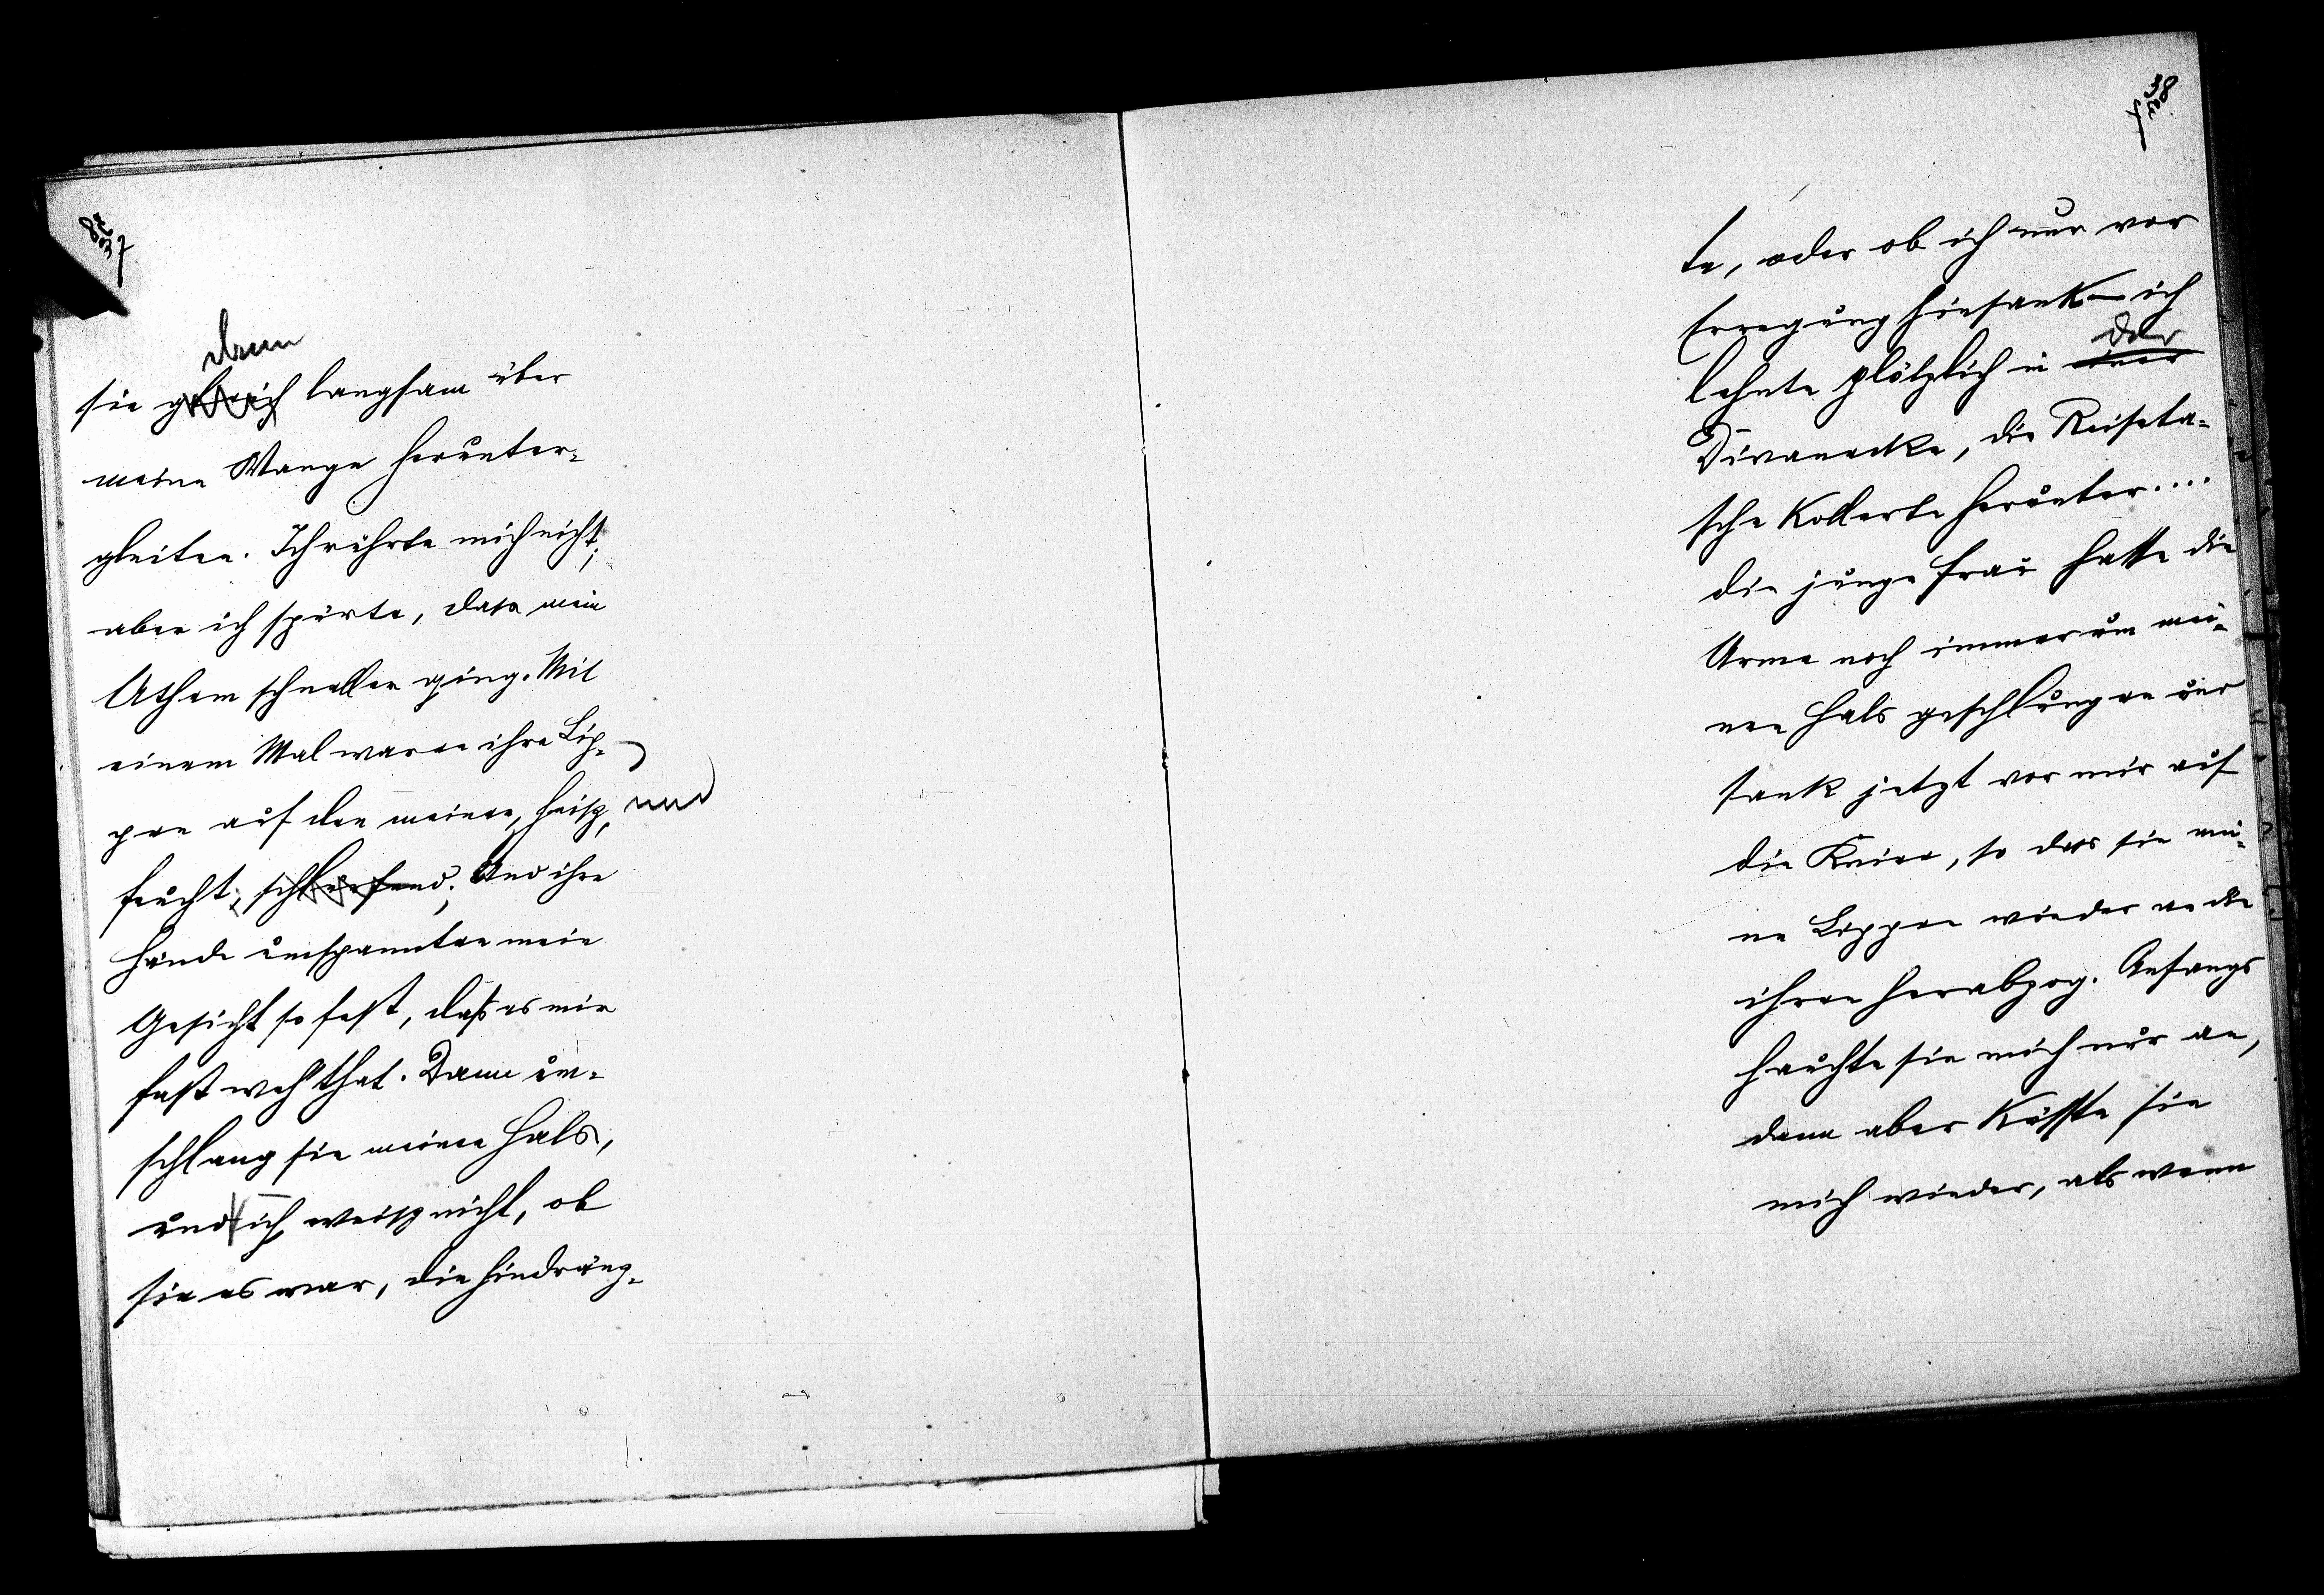 37
dann
sie gleich langsam über
meine Wange herunter-
gleiten. Ich rührte mich nicht;
aber ich spürte, dass mein
Athem schneller ging. Mit
einem Mal waren ihre Lip-
pen auf den meinen, heiß, und
feucht, schlürfend; Und ihre
Hände umspannten mein
Gesicht so fest, daß es mir
fast weh that. Dann um-
schlang sie meinen Hals,
und ich weiß nicht, ob
sie es war, die hindräng-
38
te, oder ob ich nur vor
Erregung hinsank – ich
der
lehnte plötzlich in einer
Divanecke, die Reiseta-
sche kollerte herunter....
die junge Frau hatte die
Arme noch immer um mei-
nen Hals geschlungen und
sank jetzt vor mir auf
die Kniee, so dass sie mei-
ne Lippen wieder an die
ihren herabzog. Anfangs
hauchte sie mich nur an,
dann aber küsste sie
mich wieder, als wenn